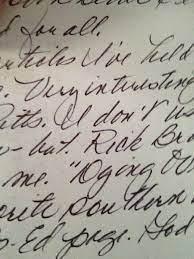 d for all.
rticles I've held
. Very interesting
Patts. I don't us
- but. Rick Bro
me. "Dying Ou
orete Southern
p-Ed page. God